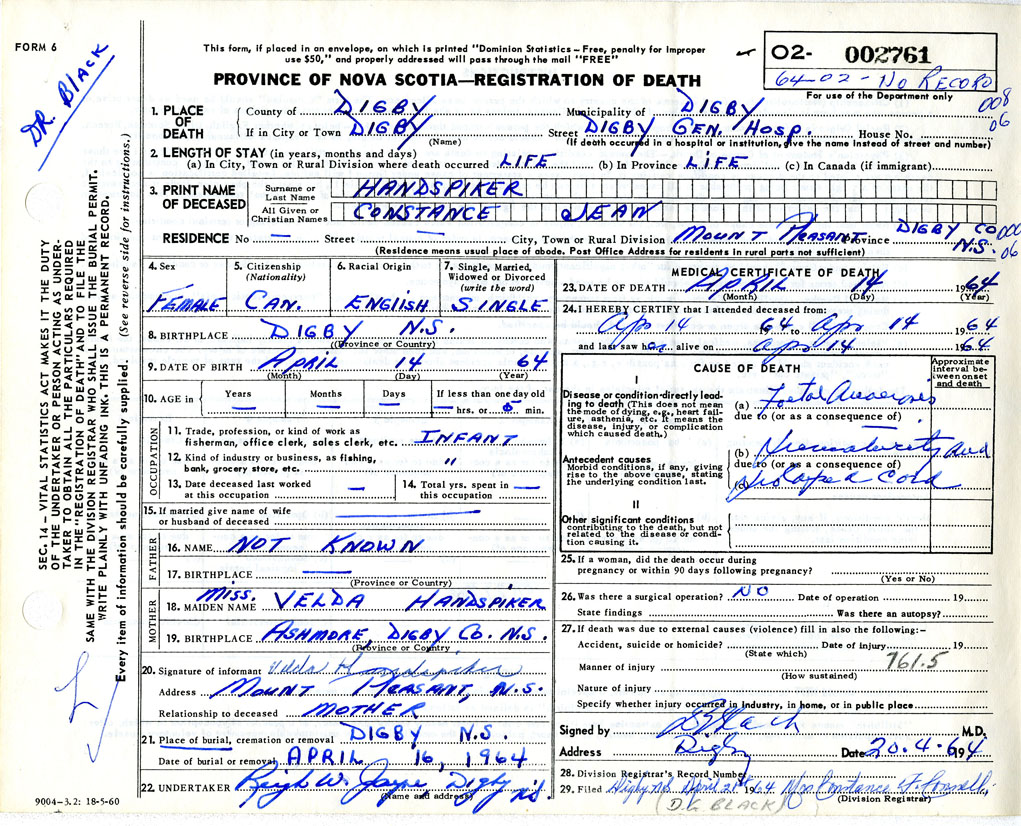 FORM 6
DR. BLACK
This form, if placed in an envelope, on which is printed "Dominion Statistics – Free, penalty for improper
use $50," and properly addressed will pass through the mail "FREE"
PROVINCE OF NOVA SCOTIA—REGISTRATION OF DEATH
O2- 002761
64-02 - NO RECORD
For use of the Department only
008
06
1. PLACE OF DEATH
County of DIGBY Municipality of DIGBY
If in City or Town DIGBY Street DIGBY GEN. HOSP. House No.
(Name) (If death occurred in a hospital or institution, give the name instead of street and number)
2. LENGTH OF STAY (in years, months and days)
(a) In City, Town or Rural Division where death occurred LIFE (b) In Province LIFE (c) In Canada (if immigrant)
3. PRINT NAME OF DECEASED
Surname or Last Name HANDSPIKER
All Given or Christian Names CONSTANCE JEAN
RESIDENCE No — Street — City, Town or Rural Division MOUNT PLEASANT Province DIGBY CO N.S.
000
06
(Residence means usual place of abode. Post Office Address for residents in rural parts not sufficient)
4. Sex FEMALE
5. Citizenship (Nationality) CAN.
6. Racial Origin ENGLISH
7. Single, Married, Widowed or Divorced (write the word) SINGLE
8. BIRTHPLACE DIGBY N.S.
(Province or Country)
9. DATE OF BIRTH APRIL 14 64
(Month) (Day) (Year)
10. AGE in Years — Months — Days — If less than one day old — hrs. or 5 min.
OCCUPATION
11. Trade, profession, or kind of work as
fisherman, office clerk, sales clerk, etc. INFANT
12. Kind of industry or business, as fishing,
bank, grocery store, etc. "
13. Date deceased last worked
at this occupation —
14. Total yrs. spent in
this occupation —
15. If married give name of wife
or husband of deceased
FATHER
16. NAME NOT KNOWN
17. BIRTHPLACE —
(Province or Country)
MOTHER
18. MAIDEN NAME MISS. VELDA HANDSPIKER
19. BIRTHPLACE ASHMORE, DIGBY CO. N.S.
(Province or Country)
20. Signature of informant Velda Handspiker
Address MOUNT PLEASANT, N.S.
Relationship to deceased MOTHER
21. Place of burial, cremation or removal DIGBY N.S.
Date of burial or removal APRIL 16, 1964
22. UNDERTAKER W. Jayne, Digby N.S.
(Name and address)
9004–3.2: 18-5-60
SEC. 14 – VITAL STATISTICS ACT MAKES IT THE DUTY
OF THE UNDERTAKER OR PERSON ACTING AS UNDER-
TAKER TO OBTAIN ALL THE PARTICULARS REQUIRED
IN THE "REGISTRATION OF DEATH" AND TO FILE THE
SAME WITH THE DIVISION REGISTRAR WHO SHALL ISSUE THE BURIAL PERMIT.
WRITE PLAINLY WITH UNFADING INK. THIS IS A PERMANENT RECORD.
Every item of information should be carefully supplied. (See reverse side for instructions.)
MEDICAL CERTIFICATE OF DEATH
23. DATE OF DEATH APRIL 14 1964
(Month) (Day) (Year)
24. I HEREBY CERTIFY that I attended deceased from:
Apr 14 64 to Apr 14 1964
and last saw her alive on Apr 14 1964
CAUSE OF DEATH
Approximate interval between onset and death
I
Disease or condition directly lead-
ing to death (This does not mean
the mode of dying, e.g., heart fail-
ure, asthenia, etc. It means the
disease, injury, or complication
which caused death.)
(a) Foetal Anoxia
due to (or as a consequence of)
Antecedent causes
Morbid conditions, if any, giving
rise to the above cause, stating
the underlying condition last.
(b) Prematurity and
due to (or as a consequence of)
(c) Prolapsed Cord
II
Other significant conditions
contributing to the death, but not
related to the disease or condi-
tion causing it.
25. If a woman, did the death occur during
pregnancy or within 90 days following pregnancy?
(Yes or No)
26. Was there a surgical operation? NO Date of operation 19
State findings Was there an autopsy?
27. If death was due to external causes (violence) fill in also the following:–
Accident, suicide or homicide? Date of injury 19
(State which)
Manner of injury 761.5
(How sustained)
Nature of injury
Specify whether injury occurred in industry, in home, or in public place
Signed by M.D.
Address Digby Date 20.4.64
28. Division Registrar's Record Number
29. Filed Digby NS. April 21st 1964 Mrs Constance F.
(Division Registrar)
(D.G BLACK)